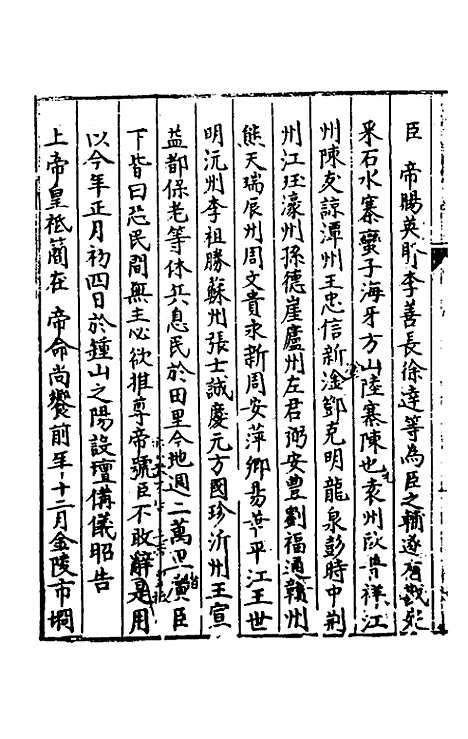 臣　帝賜英賢李善長徐達等為臣之輔遂有戡定
采石水寨蠻子海牙方山陸寨陳也先袁州歐普祥江
州陳友諒潭州王忠信新淦鄧克明龍泉彭時中荆
州江珏濠州孫德崖廬州左君弼安豊劉福通贛州
熊天瑞辰州周文貴永新周安萍鄉易華平江王世
明沅州李祖勝蘇州張士誠慶元方國珍沂州王宣
益都保老等休兵息民於田里今地週二萬里廣臣
下皆曰恐民間無主必欲推尊帝號臣不敢辭是用
以今年正月初四日於鍾山之陽設壇備儀昭告
上帝皇祗簡在　帝命尚饗前年十二月金陵市墹